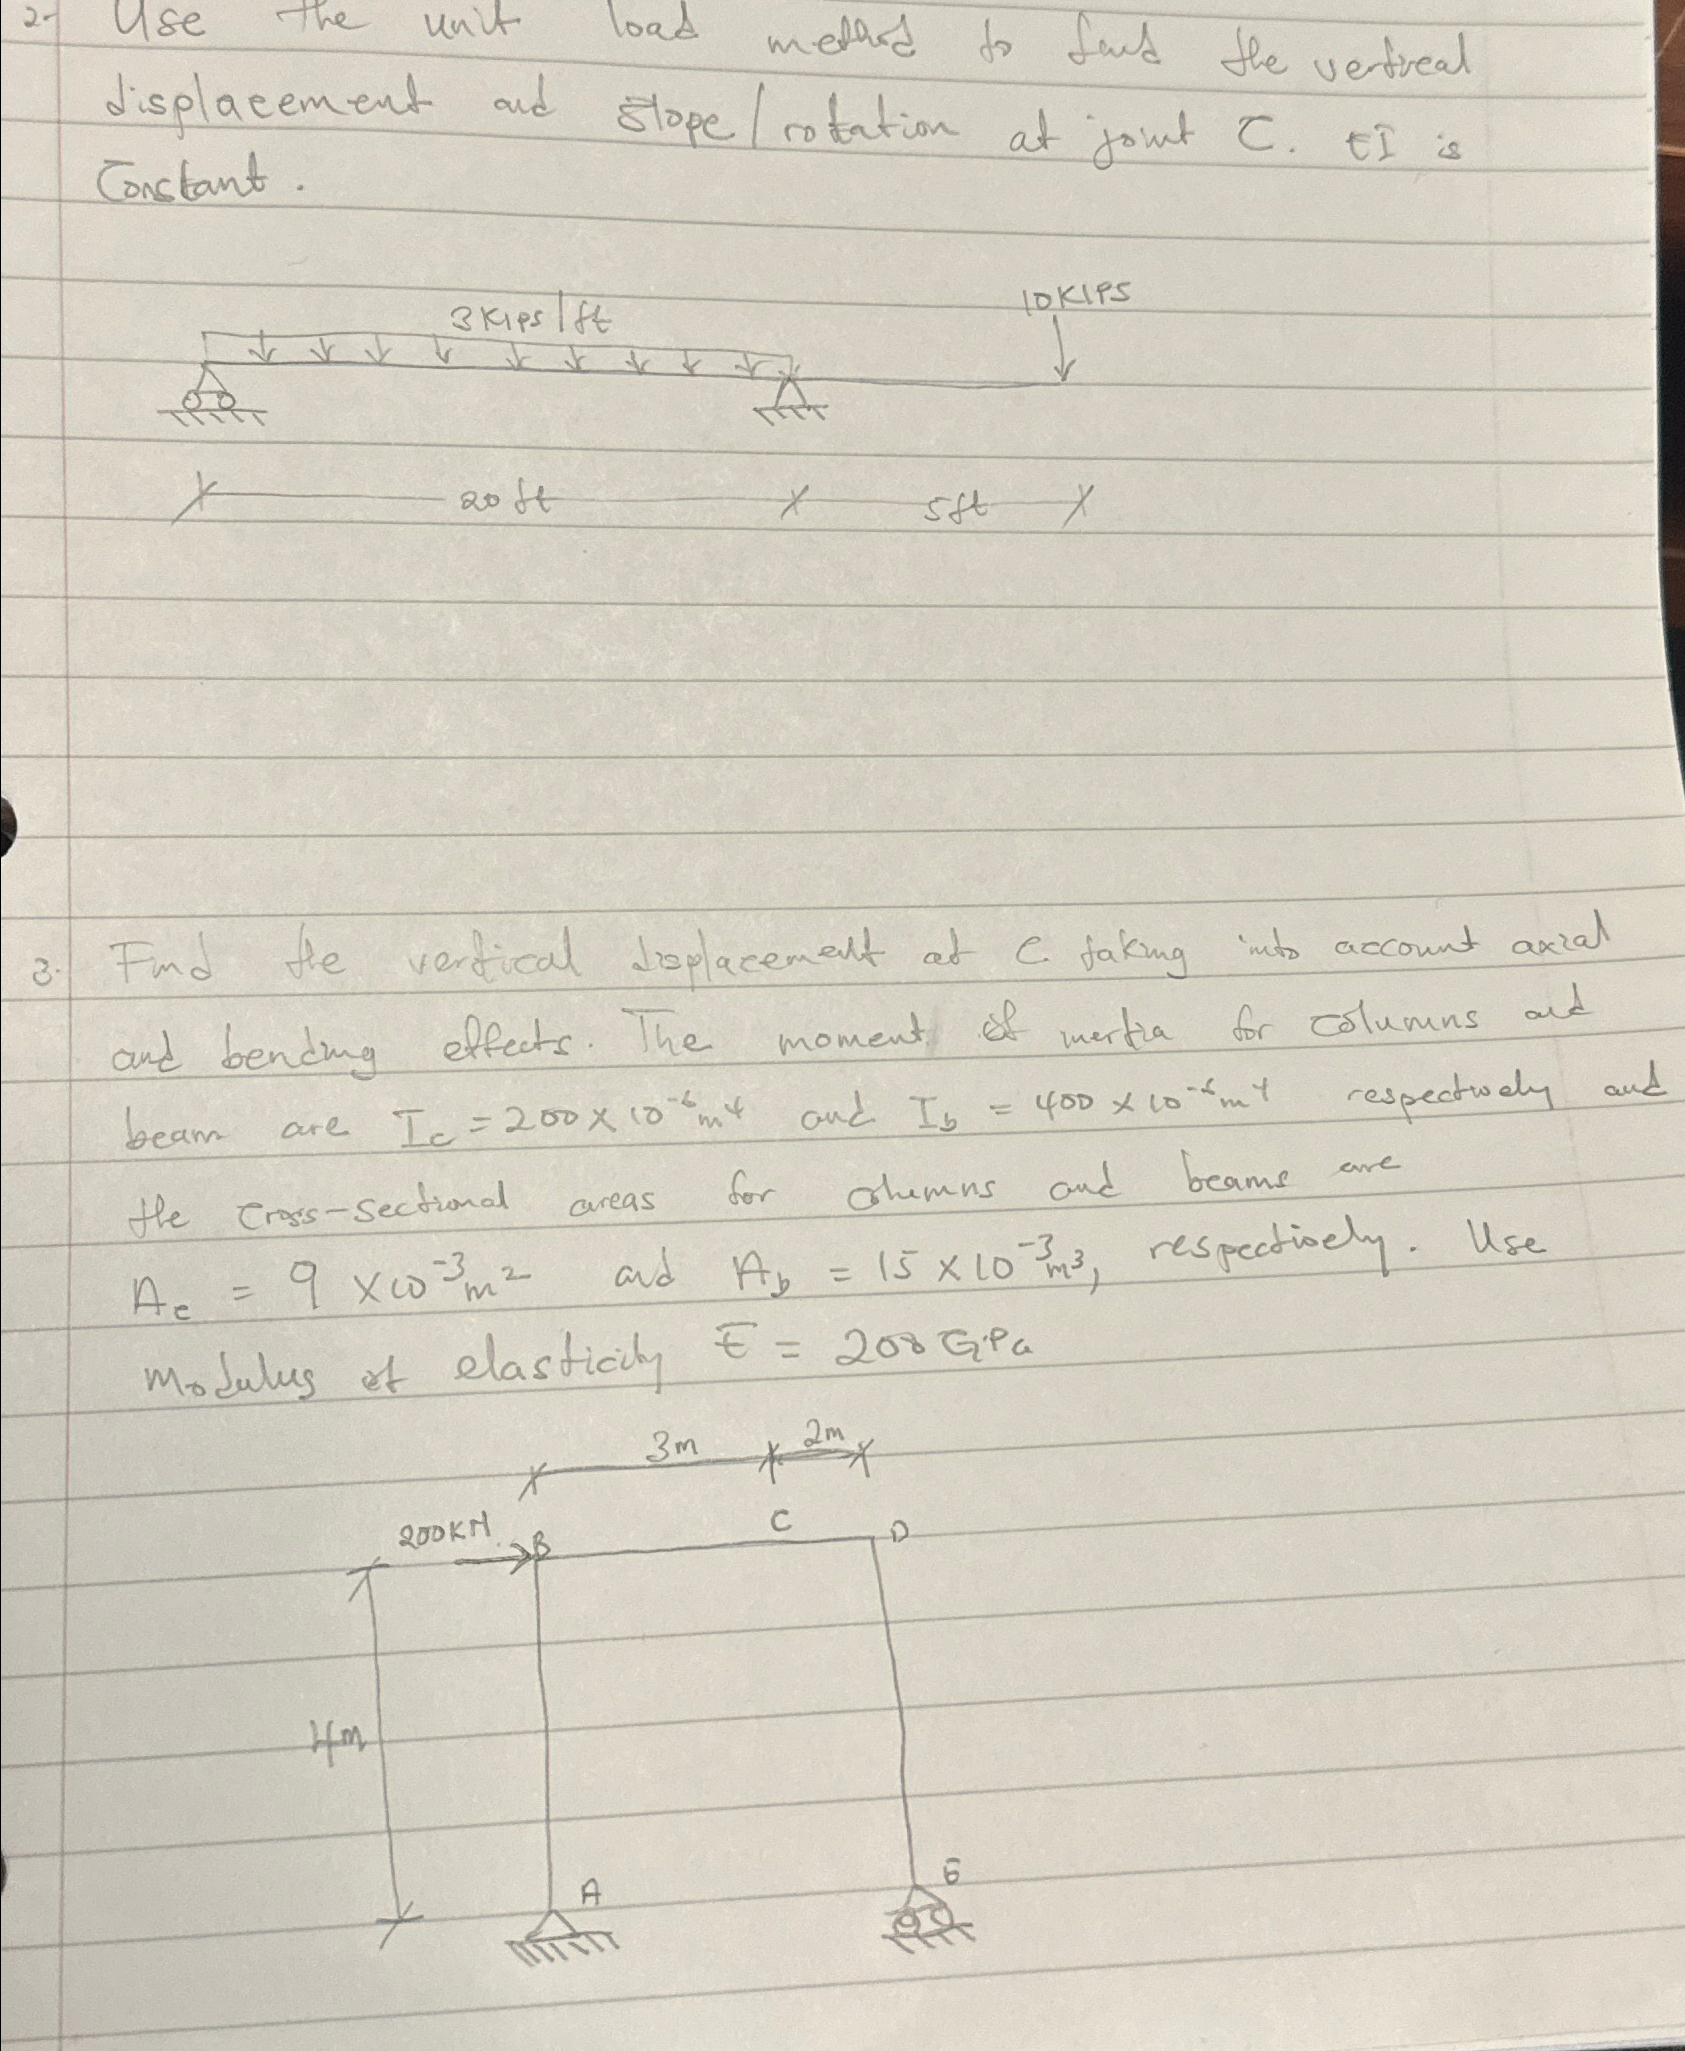 2- Use the unit load method to find the vertical
displacement and slope/rotation at joint C. EI is
Constant.
3 Kips/ft
10 KIPS
20 ft
5ft
3. Find the vertical displacement at C taking into account axial
and bending effects. The moment of inertia for columns and
beam are Ic = 200 x 10⁻⁶ m⁴ and Ib = 400 x 10⁻⁶ m⁴ respectively and
the cross-sectional areas for columns and beams are
Ac = 9 x 10⁻³ m² and Ab = 15 x 10⁻³ m³, respectively. Use
modulus of elasticity E = 200 GPa
3m
2m
200KN
B
C
D
4m
A
E